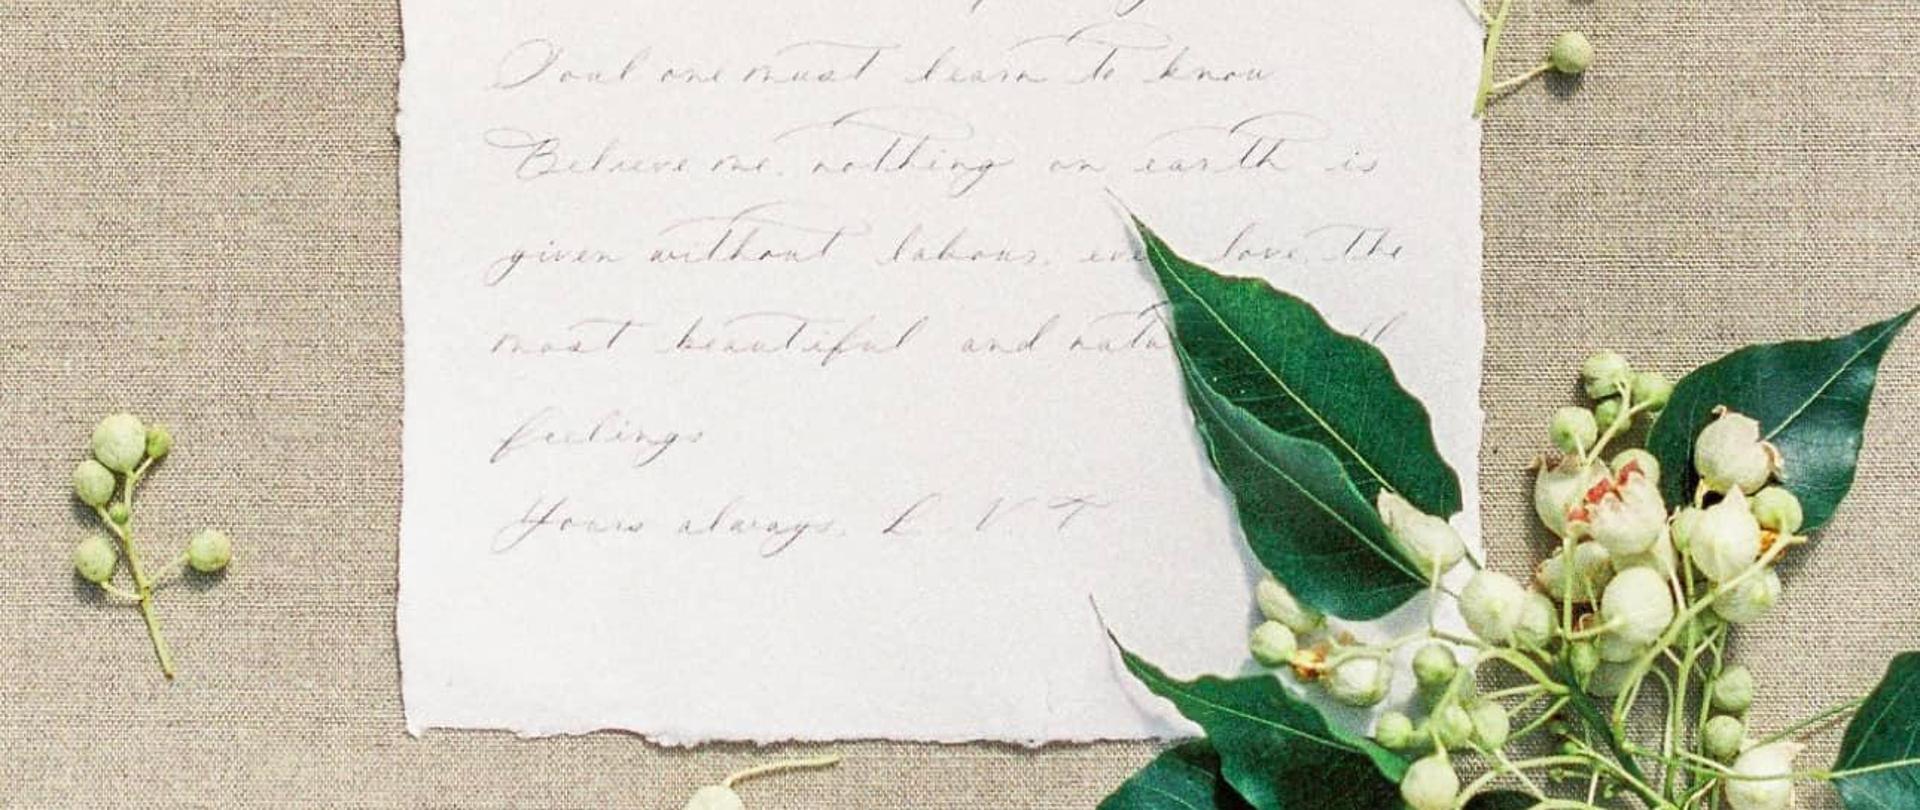 Soul one must learn to know
Believe me, nothing on earth is
given without labour, eve love, the
most beautiful and natu
feelings
Yours always, L. V. T